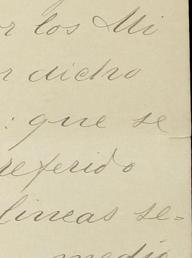 or los Mi
n dicho
: que se
referido
lineas se=
medi